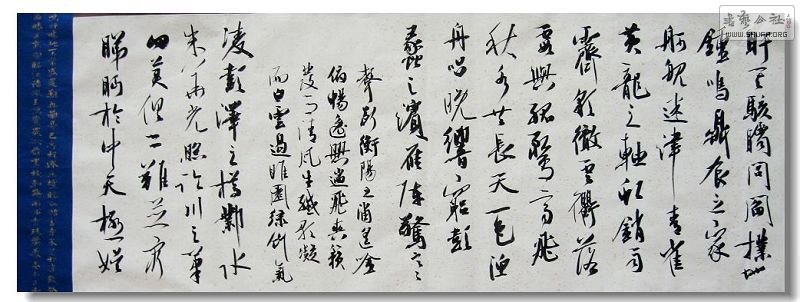 書藝公社
WWW.SHUFA.ORG
盱其駭矚閭閻撲地
鍾鳴鼎食之家
舸艦迷津青雀
黃龍之軸虹銷雨
霽彩徹雲衢落
霞與孤鶩齊飛
秋水共長天一色漁
舟唱晚響窮彭
蠡之濱雁陣驚寒
聲斷衡陽之浦遙吟
俯暢逸興遄飛爽籟
發而清風生纖歌凝
而白雲遏睢園綠竹氣
凌彭澤之樽鄴水
朱華光照臨川之筆
四美俱二難並窮
睇眄於中天極娛